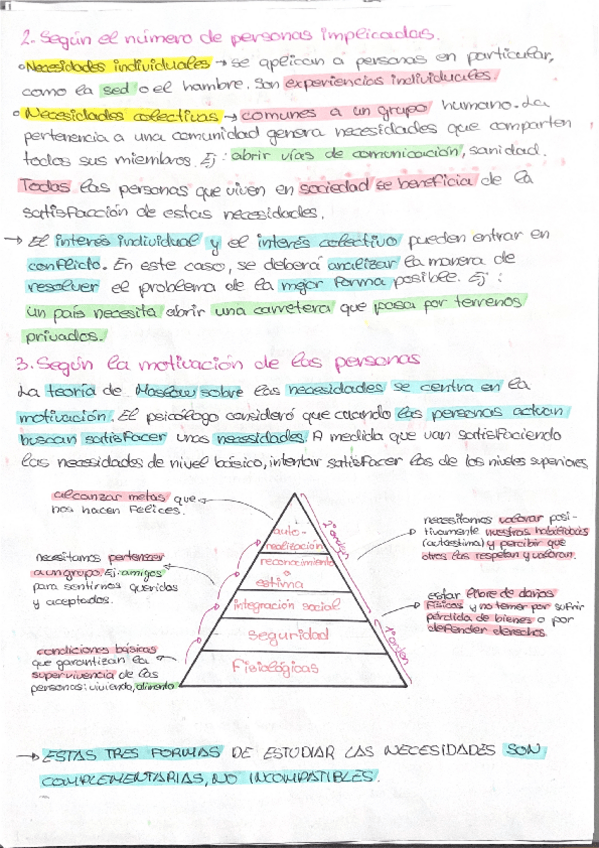 2. Según el número de personas implicadas.
Necesidades individuales → se aplican a personas en particular,
como la sed o el hambre. Son experiencias individuales.
Necesidades colectivas → comunes a un grupo humano. La
pertenencia a una comunidad genera necesidades que comparten
todos sus miembros. Ej: abrir vías de comunicación, sanidad.
Todas las personas que viven en sociedad se beneficia de la
satisfacción de estas necesidades.
→ El interés individual y el interés colectivo pueden entrar en
conflicto. En este caso, se deberá analizar la manera de
resolver el problema de la mejor forma posible. Ej:
un país necesita abrir una carretera que pasa por terrenos
privados.
3. Según la motivación de las personas
La teoría de Maslow sobre las necesidades se centra en la
motivación. El psicólogo consideró que cuando las personas actúan
buscan satisfacer unas necesidades. A medida que van satisfaciendo
las necesidades de nivel básico, intentar satisfacer las de los niveles superiores
alcanzar metas que
nos hacen felices.
necesitamos pertenecer
a un grupo. Ej: amigos
para sentirnos queridos
y aceptados.
condiciones básicas
que garantizan la
supervivencia de las
personas: vivienda, alimento
auto-
realización
reconocimiento
o
estima
integración social
seguridad
Fisiológicas
2º orden
1º orden
necesitamos valorar posi-
tivamente nuestras habilidades
(autoestima) y percibir que
otros las respetan y valoran.
estar libre de daños
físicos y no temer por sufrir
pérdida de bienes o por
defender derechos.
→ ESTAS TRES FORMAS DE ESTUDIAR LAS NECESIDADES SON
COMPLEMENTARIAS, NO INCOMPATIBLES.